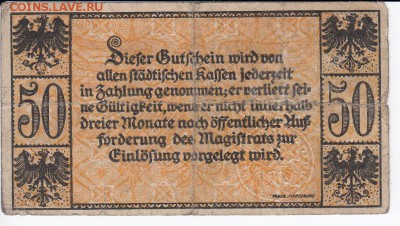 COINS.LAVE.RU
Dieser Gutschein wird von
allen städtischen Kassen jederzeit
in Zahlung genommen; er verliert sei-
ne Gültigkeit, wenn er nicht innerhalb
dreier Monate nach öffentlicher Auf-
forderung des Magistrats zur
Einlösung vorgelegt wird.
50
50